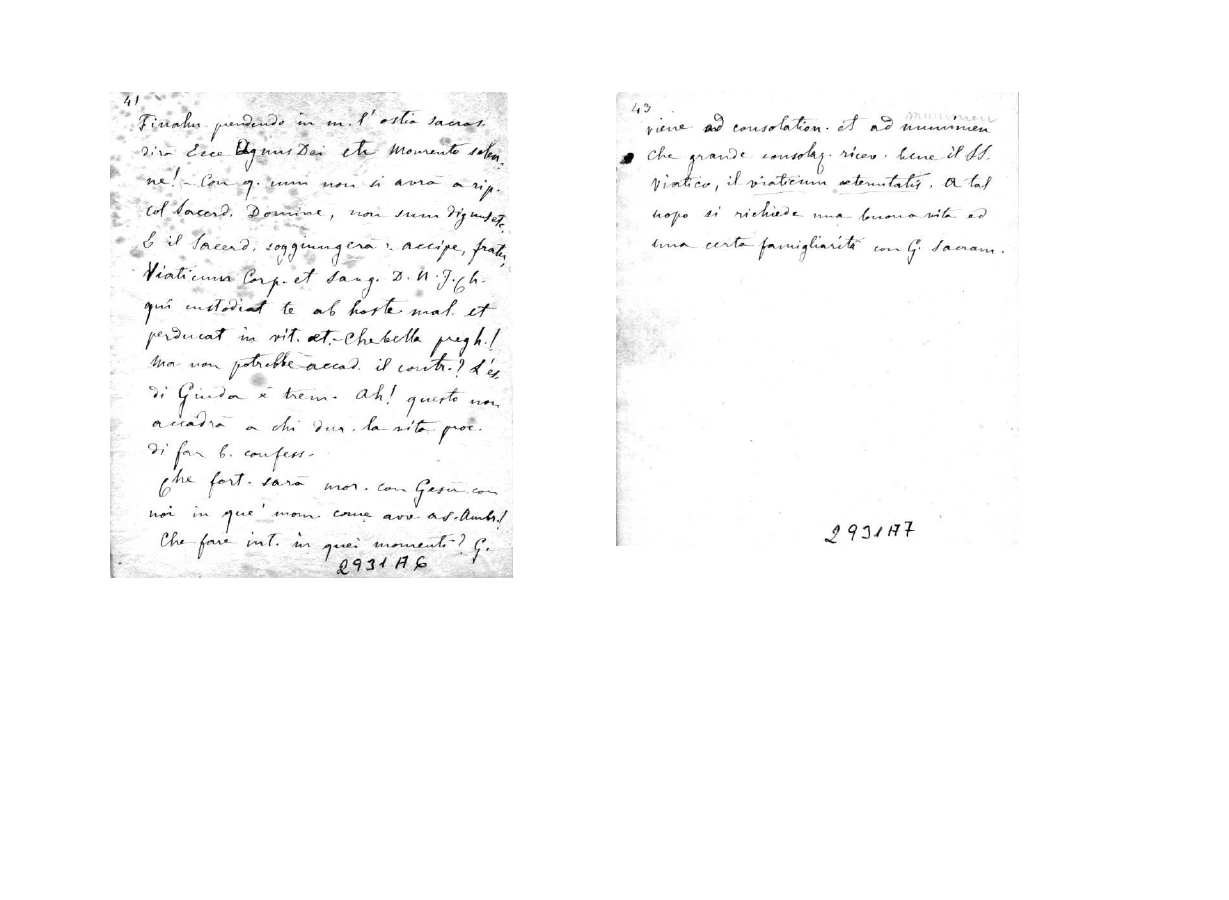 41
Finalm. prendendo in m. l' ostia sacros.
dirà Ecce Agnus Dei etc Momento solen-
ne! - Con q. umi non si avrà a rip.
col Sacerd. Domine, non sum dignus etc.
E il Sacerd. soggiungerà: accipe, frater,
Viaticum Corp. et Sang. D. N. J. Ch.
qui custodiat te ab hoste mal. et
perducat in vit. æt. - Che bella pregh.!
Ma non potrebbe accad. il contr.? L'es.
di Giuda è trem. Ah! questo non
accadrà a chi dur. la vita proc.
di far b. confess.
Che fort. sarà mor. con Gesù con
noi in que' mom. come avv. a S. Amb.!
Che fare int. in quei momenti? G.
2931A6
43
munimen
viene ad consolation. et ad munimen
che grande consolaz. ricev. bene il SS.
Viatico, il viaticum æternitatis. A tal
uopo si richiede una buona vita ed
una certa famigliarità con G. Sacram.
2931A7